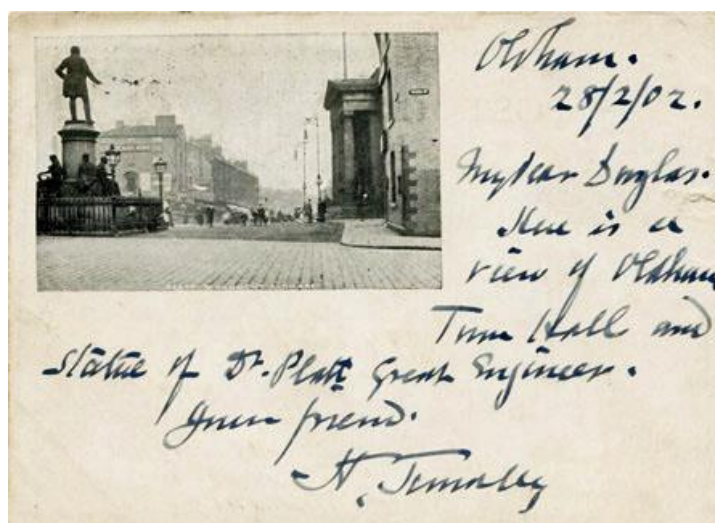 Oldham.
28/2/02.
My dear Douglas.
Here is a
view of Oldham
Town Hall and
Statue of Dr. Platt Great Engineer.
Your friend.
H.